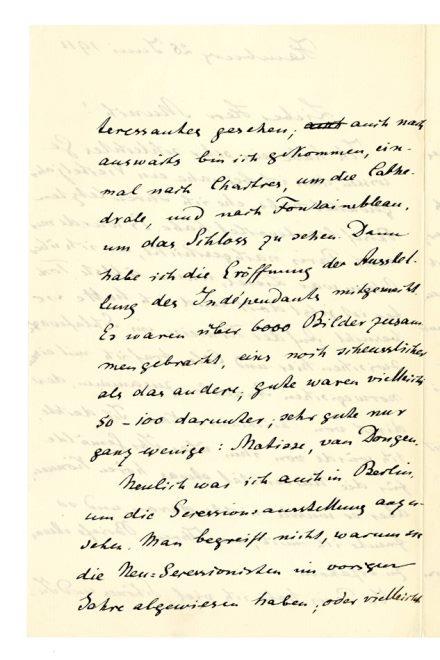 teressantes gesehen; auch nach
auswärts bin ich gekommen, ein-
mal nach Chartres, um die Cathe-
drale, und nach Fontainebleau,
um das Schloss zu sehen. Dann
habe ich die Eröffnung der Ausstel-
lung des Indépendants mitgemacht.
Es waren über 6000 Bilder zusam
mengebracht, eins noch scheusslicher
als das andere; gute waren vielleicht
50-100 darunter, sehr gute nur
ganz wenige: Matisse, van Dongen.
Neulich war ich auch in Berlin,
um die Secessionsausstellung anzu-
sehen. Man begreift nicht, warum sie
die Neu=Secessionisten im vorigen
Jahre abgewiesen haben, oder vielleicht